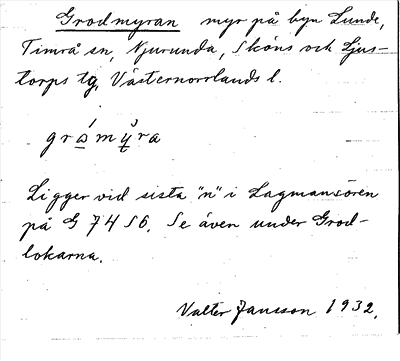 Grodmyran myr på byn Lunde,
Timrå sn, Njurunda, Sköns och Ljus-
torps tg, Västernorrlands l.
gramyra
Ligger vid sista "n" i Lagmansören
på G 74 S6. Se även under Grod-
lokarna.
Valter Jansson 1932.